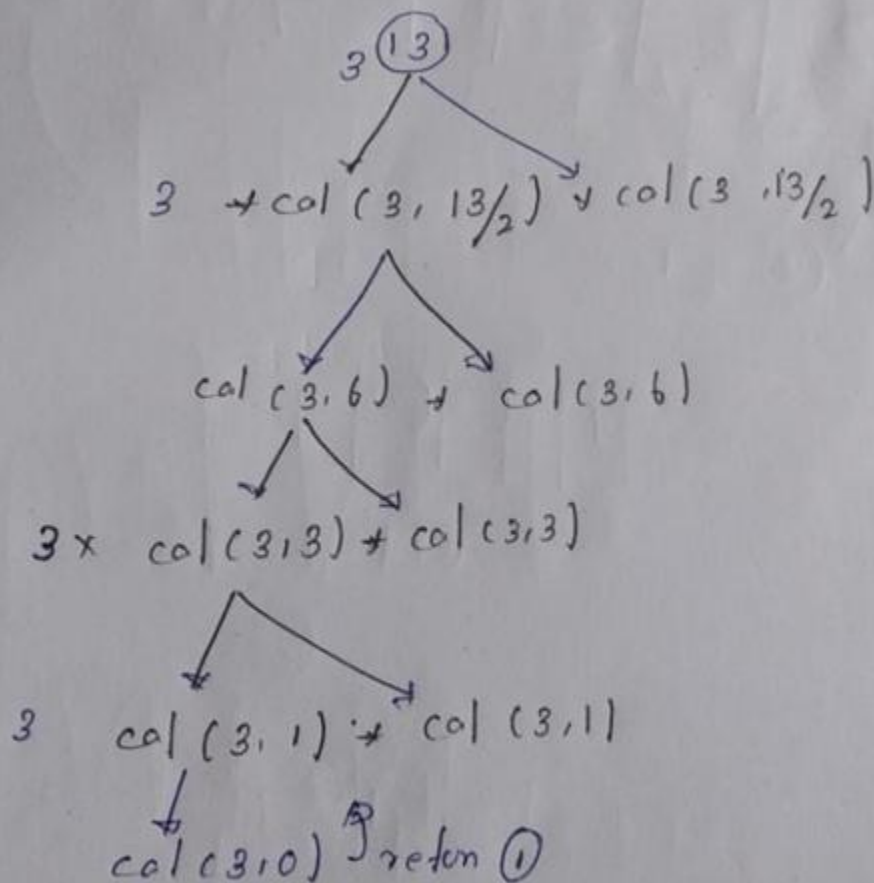 3 13
3 * cal (3, 13/2) * cal (3, 13/2)
cal (3,6) * cal (3,6)
3 x cal (3,3) * cal (3,3)
3 cal (3,1) * cal (3,1)
cal (3,0) } retun 1